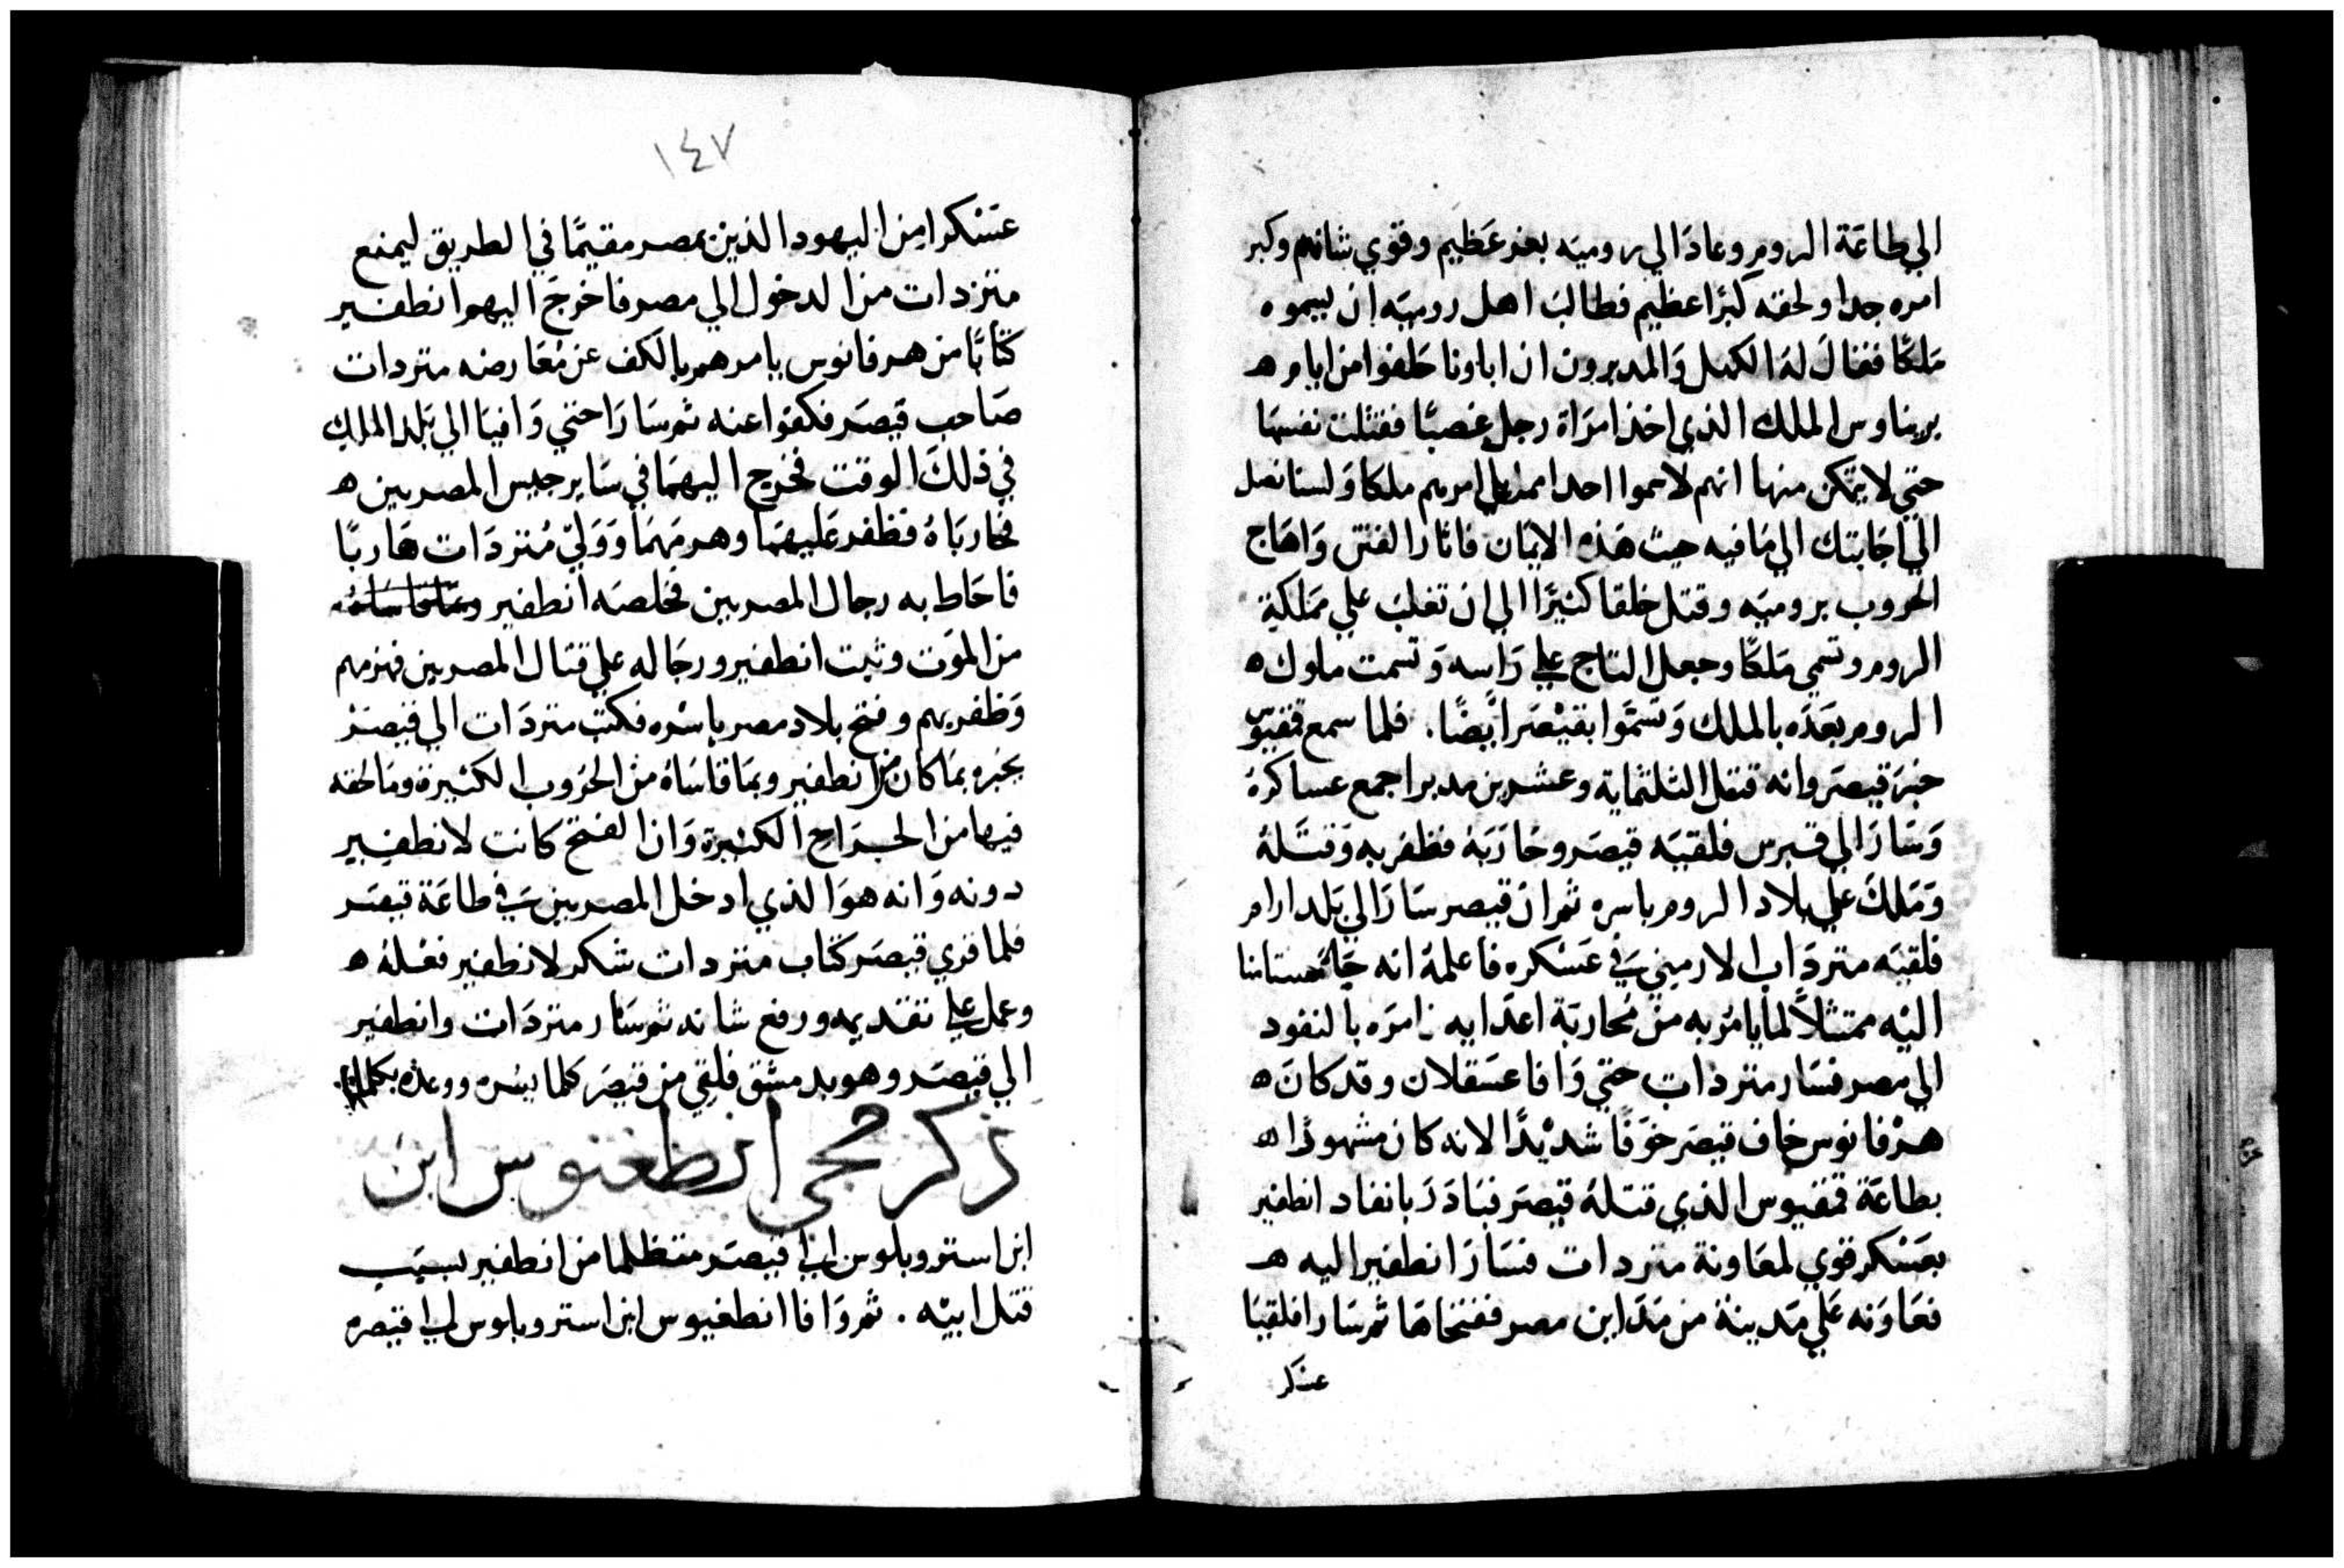 الي طاعَة الروم وعادَ الي روميَه بعز عَظيم وقوي شانهم وكبر
امره جدا ولحقه كبرًا عظيم فطالبَ اهل روميَه ان يسموه
مَلكًا فقال لهَ الكهل وَالمدبرون ان اباونا حَلفوا من ايام ه
بريناوس الملك الذي اخذ امرَاة رجل غصبًا فقتلت نفسهَا
حتي لا يتمكن منها انهم لا سموا احدا امرهم ملكا وَلسنا نصل
الي اجَابتك الي مَا فيه حيث هَذه الايمَان فاثارَ الفتن وَاهَاج
الحروب بروميَه وقتل خلقا كثيرًا الي ان تغلبَ علي مَملكَة
الروم وتسمي مَلكًا وجعل التاج علي رَاسه وَتسمت ملوك ه
الروم بَعدَه بالملك وَتسمَّوا بقيْصَر ايضًا . فلما سمع قمفيوس
خبرَ قيصَر وانه قتل الثلثماية وعشرين مدبرا جمع عساكرهُ
وَسَارَ الي قبرس فلقيَه قيصَر وحَاربَهُ فظفر به وَقتَلهُ
وَمَلكَ علي بلاد الروم باسره ثم ان قيصر سَارَ الي بَلد ارام
فلقيَه متردَاب الارميني في عَسْكره فاعلمهُ انه جَا مستامنا
اليْه ممتثلاً لما يامُر به من مُحاربَة اعدَايه . امرَه بالنفود
الي مصر فسَار متردات حتي وَافا عسَقلان وقد كانَ ه
هرْقانوس خاف قيصَر خوَفًا شديْدًا لانه كان مشهودًا ه
بطاعَة قمفيوس الذي قتلهُ قيصَر فبَادَرَ بانفاد انطفير
بعَسْكر قوي لمعَاونة متردات فسَارَ انطفير اليه ه
فعَاوَنه عَلي مَدينة من مَدَاين مصر ففتحَاهَا ثم سَارا فلقيَا
عسَكر
١٤٧
عسَْكرا من اليهود الذين بمصر مقيمًا في الطريق ليمنع
متزدات من الدخول الي مصر فاخرَج اليهم انطفير
كتابًا من هرقانوس يامرهم بالكف عن مُعَارضه متردات
صَاحب قيصَر فكفوا عنه ثم سَارَا حتي وَافيَا الي بَلد الملك
في ذلكَ الوقت فخرج اليهمَا في سَاير جيس المصريين ه
فحاربَاهُ فظفر عَليهمَا وهزمَهمَا وَوَليّ مُتردَات هَاربًا
فاحَاط به رجال المصريين فخلصَه انطفير
من الموَت وثبت انطفير ورجَاله علي قتال المصريين فهزمهم
وَظفر بهم وفتح بلاد مصر باسْره فكتبَ متردَات الي قيصَرْ
يخبره بمَا كان من انطفير وبمَا قاسَاهُ من الحُروب الكثيرة ومَا لحقه
فيها من الجرَاح الكثيرة وَان الفتح كانت لانطفير
دونه وَانه هوَ الذي ادخل المصريين في طاعَة قيصَر
فلما قري قيصَر كتاب متردات شكر لانطفير فعْلهُ ه
وعمل علي تقديمه ورفع شانه ثم سَار متردَات وانطفير
الي قيصَر وهو بدمشق فلقي من قيصَر كلما يسُره ووعدْه بكلما
ذكر مجي انطغنوس ابن
ابن استروبلوس الي قيصَر متظلما من انطفير لسبَب
قتل ابيْه . ثم وَافا انطغيوس ابن استروبلوس الي قيصره